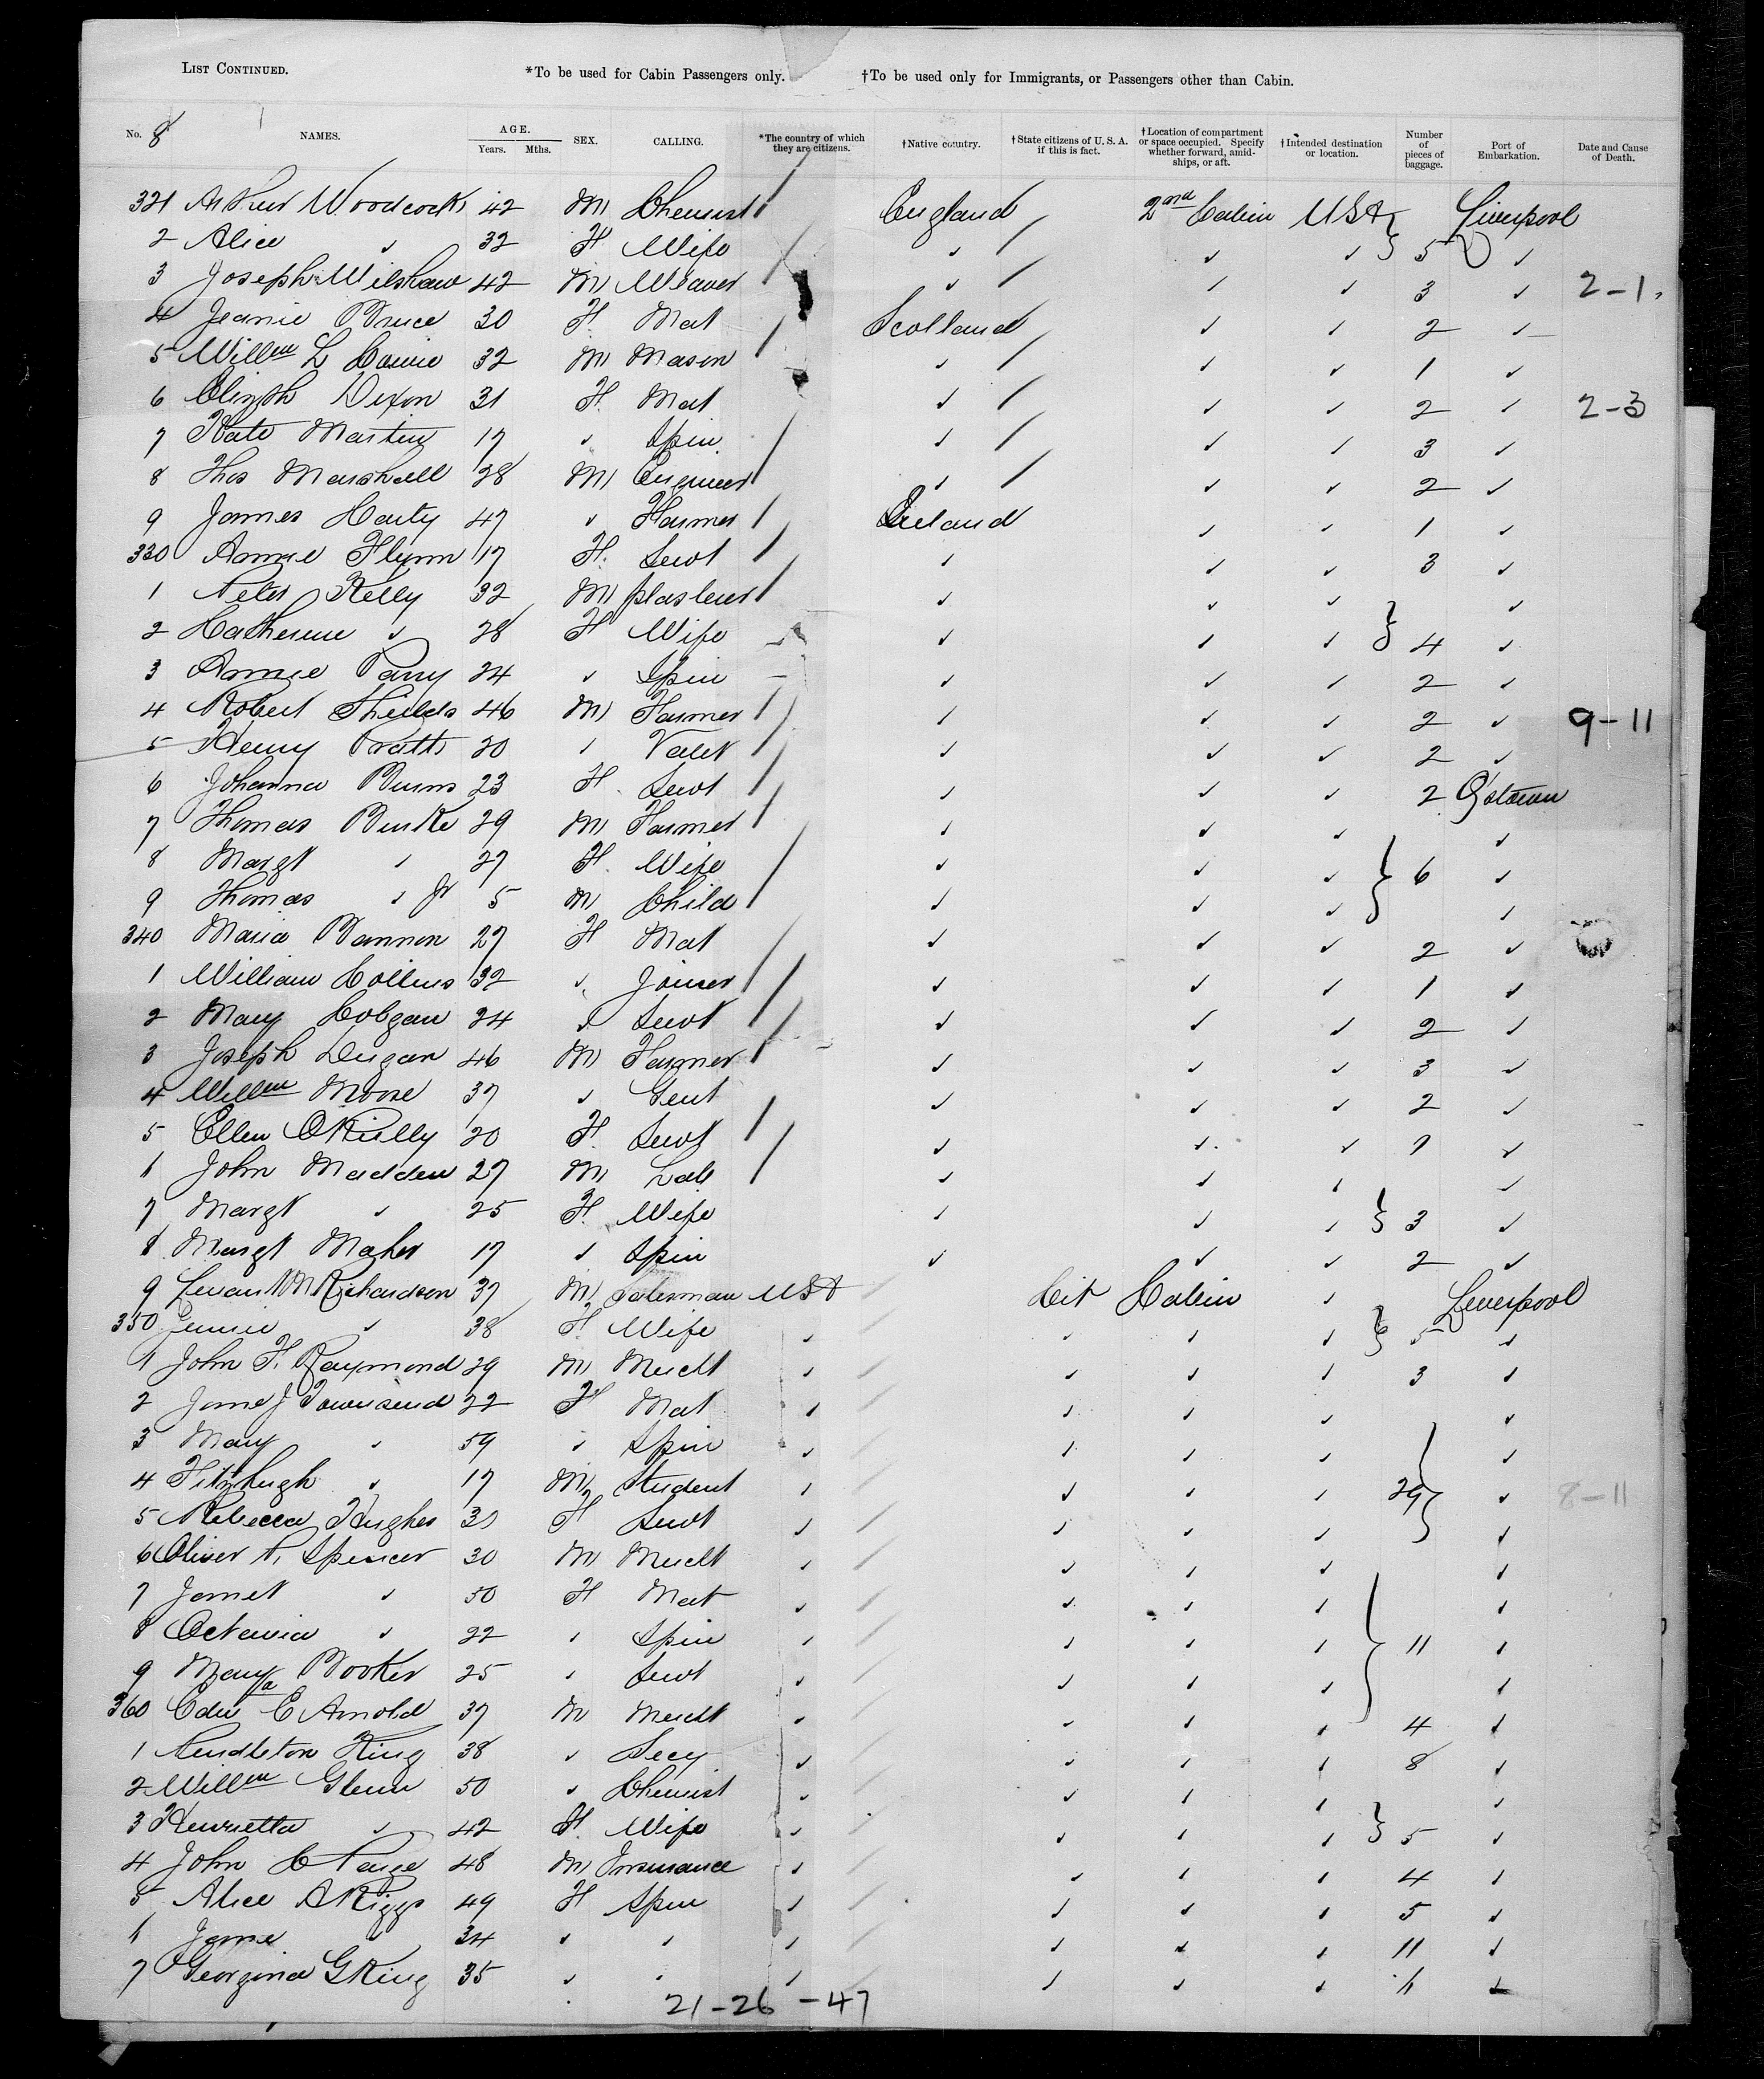 LIST CONTINUED. *To be used for Cabin Passengers only. †To be used only for Immigrants, or Passengers other than Cabin.
No. 8 NAMES. AGE. Years. Mths. SEX. CALLING. *The country of which they are citizens. †Native country. †State citizens of U. S. A. if this is fact. †Location of compartment or space occupied. Specify whether forward, amidships, or aft. †Intended destination or location. Number of pieces of baggage. Port of Embarkation. Date and Cause of Death.
321 Arthur Woodcock 42 M Chemist England 2nd Cabin USA Liverpool
2 Alice ✓ 32 F Wife ✓ ✓ ✓ 5 ✓
3 Joseph Wilshaw 42 M Weaver ✓ ✓ ✓ 3 ✓ 2-1
4 Jeanie Bruce 30 F Mat Scotland ✓ ✓ 2 ✓
5 Willm L 32 M Mason ✓ ✓ ✓ 1 ✓
6 Elizth Dixon 31 F. Mat ✓ ✓ ✓ 2 ✓ 2-3
7 Kate Martin 17 ✓ Spin ✓ ✓ ✓ 3 ✓
8 Thos Marshall 28 M Engineer ✓ ✓ ✓ 2 ✓
9 James Harty 47 ✓ Farmer Ireland ✓ ✓ 1 ✓
330 Annie Flynn 17 F. Servt ✓ ✓ ✓ 3 ✓
1 Peter Kelly 32 M plasterer ✓ ✓ ✓ ✓
2 Catherine ✓ 28 F Wife ✓ ✓ ✓ 4 ✓
3 Annie Parry 24 ✓ Spin ✓ ✓ ✓ 2 ✓
4 Robert Shields 46 M Farmer ✓ ✓ ✓ 2 ✓ 9-11
5 Henry Pratt 20 ✓ Valet ✓ ✓ ✓ 2 ✓
6 Johanna Burns 23 F. Servt ✓ ✓ ✓ 2 Q'stown
7 Thomas Burke 29 M Farmer ✓ ✓ ✓ ✓
8 Margt ✓ 27 F. Wife ✓ ✓ ✓ 6 ✓
9 Thomas ✓ Jr 5 M Child ✓ ✓ ✓ ✓
340 Maria Bannon 27 F Mat ✓ ✓ ✓ 2 ✓
1 William Collins 32 ✓ Joiner ✓ ✓ ✓ 1 ✓
2 Mary Colgan 24 ✓ Servt ✓ ✓ ✓ 2 ✓
3 Joseph Dugan 46 M Farmer ✓ ✓ ✓ 3 ✓
4 Willm Moore 37 ✓ Gent ✓ ✓ ✓ 2 ✓
5 Ellen OReilly 20 F. Servt ✓ ✓ ✓ 1 ✓
6 John Madden 27 M Lab ✓ ✓ ✓ ✓
7 Margt ✓ 25 F. Wife ✓ ✓ ✓ 3 ✓
8 Margt Maher 17 ✓ Spin ✓ ✓ ✓ 2 ✓
9 Richardson 37 M Salesman USA Cit Cabin ✓ Liverpool
350 Jennie ✓ 38 F. Wife ✓ ✓ ✓ ✓ 5 ✓
1 John F. Raymond 29 M Mercht ✓ ✓ ✓ ✓ 3 ✓
2 Jane J Townsend 22 F Mat ✓ ✓ ✓ ✓ ✓
3 Mary ✓ 59 ✓ Spin ✓ ✓ ✓ ✓ ✓
4 Fitzhugh ✓ 17 M Student ✓ ✓ ✓ ✓ 29 ✓ 8-11
5 Rebecca Hughes 31 F Servt ✓ ✓ ✓ ✓ ✓
6 Oliver Spencer 30 M Mercht ✓ ✓ ✓ ✓ ✓
7 Janet ✓ 50 F Mat ✓ ✓ ✓ ✓ ✓
8 Octavia ✓ 22 ✓ Spin ✓ ✓ ✓ ✓ 11 ✓
9 Mary Booker 25 ✓ Servt ✓ ✓ ✓ ✓ ✓
360 E Arnold 37 M Mercht ✓ ✓ ✓ ✓ 4 ✓
1 Pendleton King 38 ✓ Secy ✓ ✓ ✓ ✓ 8 ✓
2 Willm Glenn 50 ✓ Chemist ✓ ✓ ✓ ✓ ✓
3 Henrietta ✓ 42 F. Wife ✓ ✓ ✓ ✓ 5 ✓
4 John C Paige 48 M Insurance ✓ ✓ ✓ ✓ 4 ✓
5 Alice Riggs 49 F Spin ✓ ✓ ✓ ✓ 5 ✓
6 Jane ✓ 34 ✓ ✓ ✓ ✓ ✓ ✓ 11 ✓
7 Georgina G King 35 ✓ ✓ ✓ ✓ ✓ ✓ ✓
21-26-47